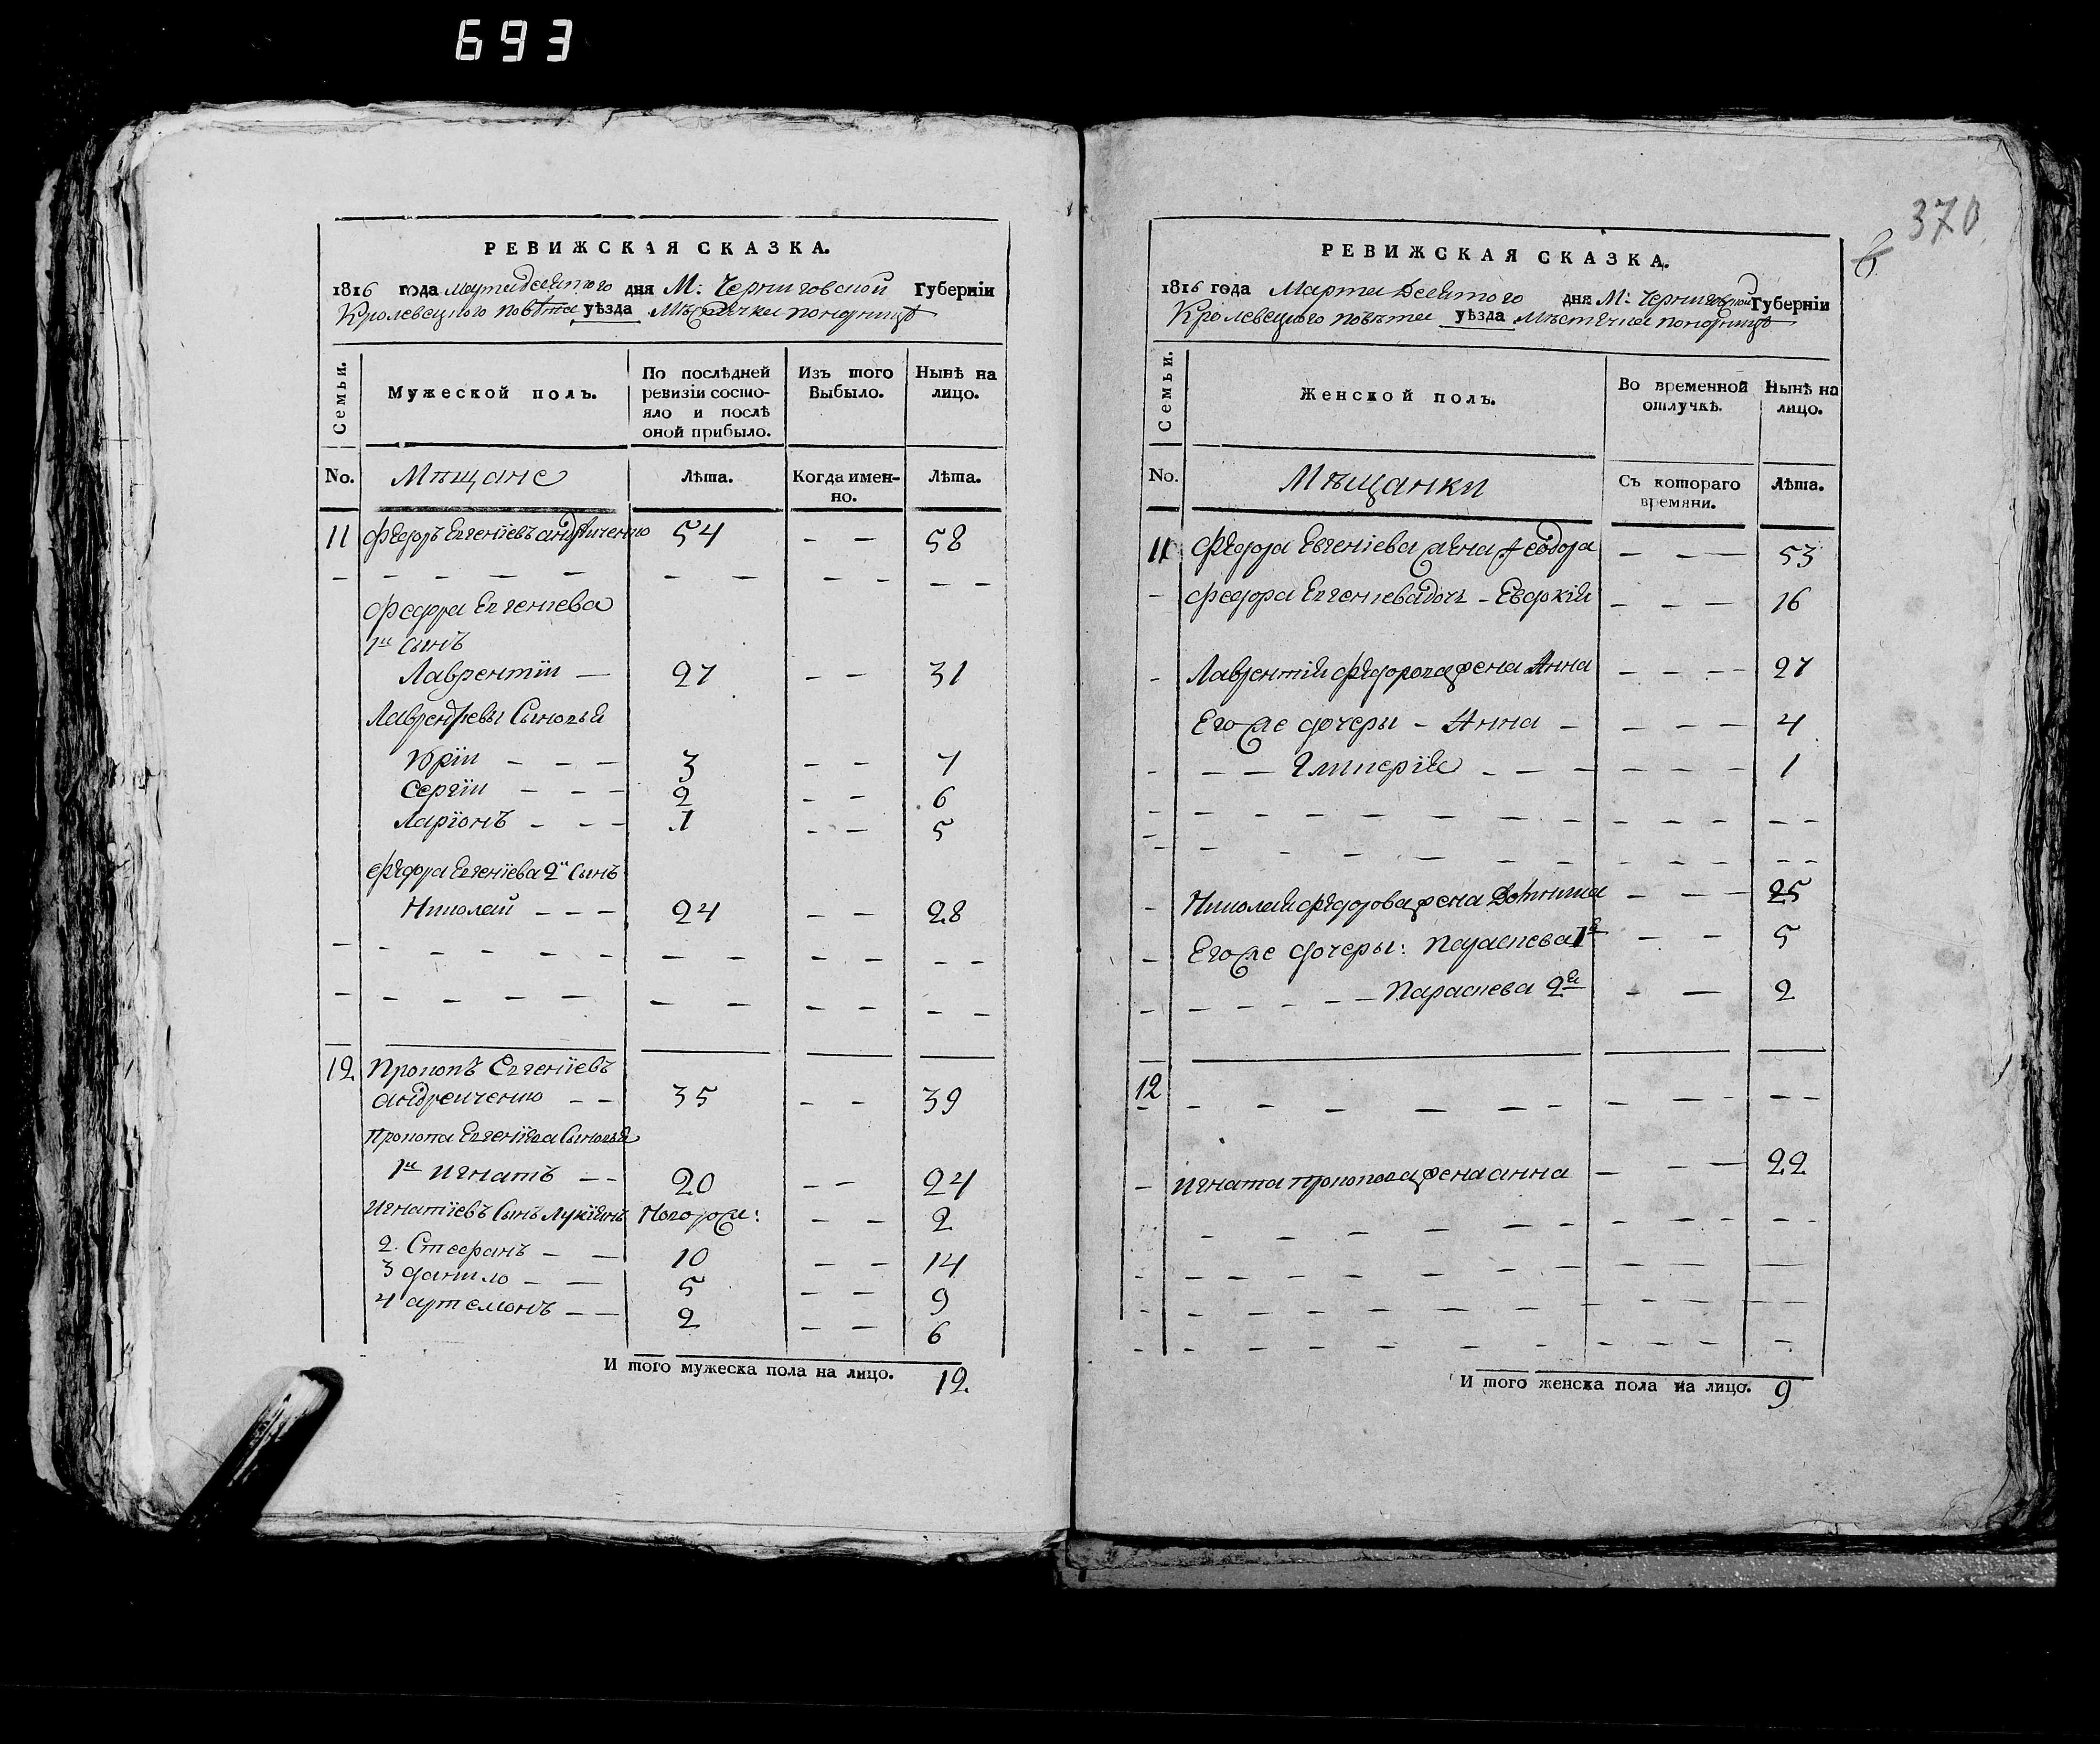 693
РЕВИЖСКАЯ СКАЗКА.
1816 года Марта десятого дня М: Черниговской Губерніи
Кролевецкого повѣта уѣзда Мѣстечка Понорницѣ
Семьи.
Мужеской полъ.
По послѣдней ревизіи состо-
яло и послѣ
оной прибыло.
Изъ того
Выбыло.
Нынѣ на
лицо.
No. Мѣщане Лѣта. Когда имен-
но. Лѣта.
11 Федоръ Евгеніевъ андрѣиченко 54 - - 58
Федора Евгеніева
1й сынъ
Лаврентіи — 27 - - 31
Лаврентіевы Сыновья
Юріи - - - 3 - - 7
Сергіи - - - 2 - - 6
Ларіонъ - - - 1 - - 5
Федора Евгеніева 2й Сынъ
Николай - - - 24 - - 28
12 Прокопъ Евгеніевъ
андреиченко - - 35 - - 39
Прокопа Евгеніева Сыновья
1й Игнатъ - - 20 - - 24
Игнатіевъ Сынъ Лукіянъ Новорож: - - 2
2. Стефанъ - - 10 - - 14
3 данило - - 5 - - 9
4 артемонъ - - 2 - - 6
И того мужеска пола на лицо. 12
370
РЕВИЖСКАЯ СКАЗКА.
1816 года Марта Десятого дня М: Черниговской Губерніи
Кролевецкого повѣта уѣзда Мѣстечка Понорницѣ
Семьи.
Женской полъ.
Во временной
отлучкѣ.
Нынѣ на
лицо.
No. Мѣщанки Съ котораго
времяни. Лѣта.
11 Федора Евгеніева жена Феодора - - - 53
Федора Евгеніева дочь - Евдокія - - - 16
Лаврентія Федорова жена Анна - - - - 27
Его же дочеры - Анна - - - - - 4
- - - Гликерія - - - - - - - 1
Николая Федорова жена - - - 25
Его же дочеры: Параскева 1я - - 5
- - - - - Параскева 2я - - 2
12
Игната Прокопова жена анна - - - 22
И того женска пола на лицо. 9